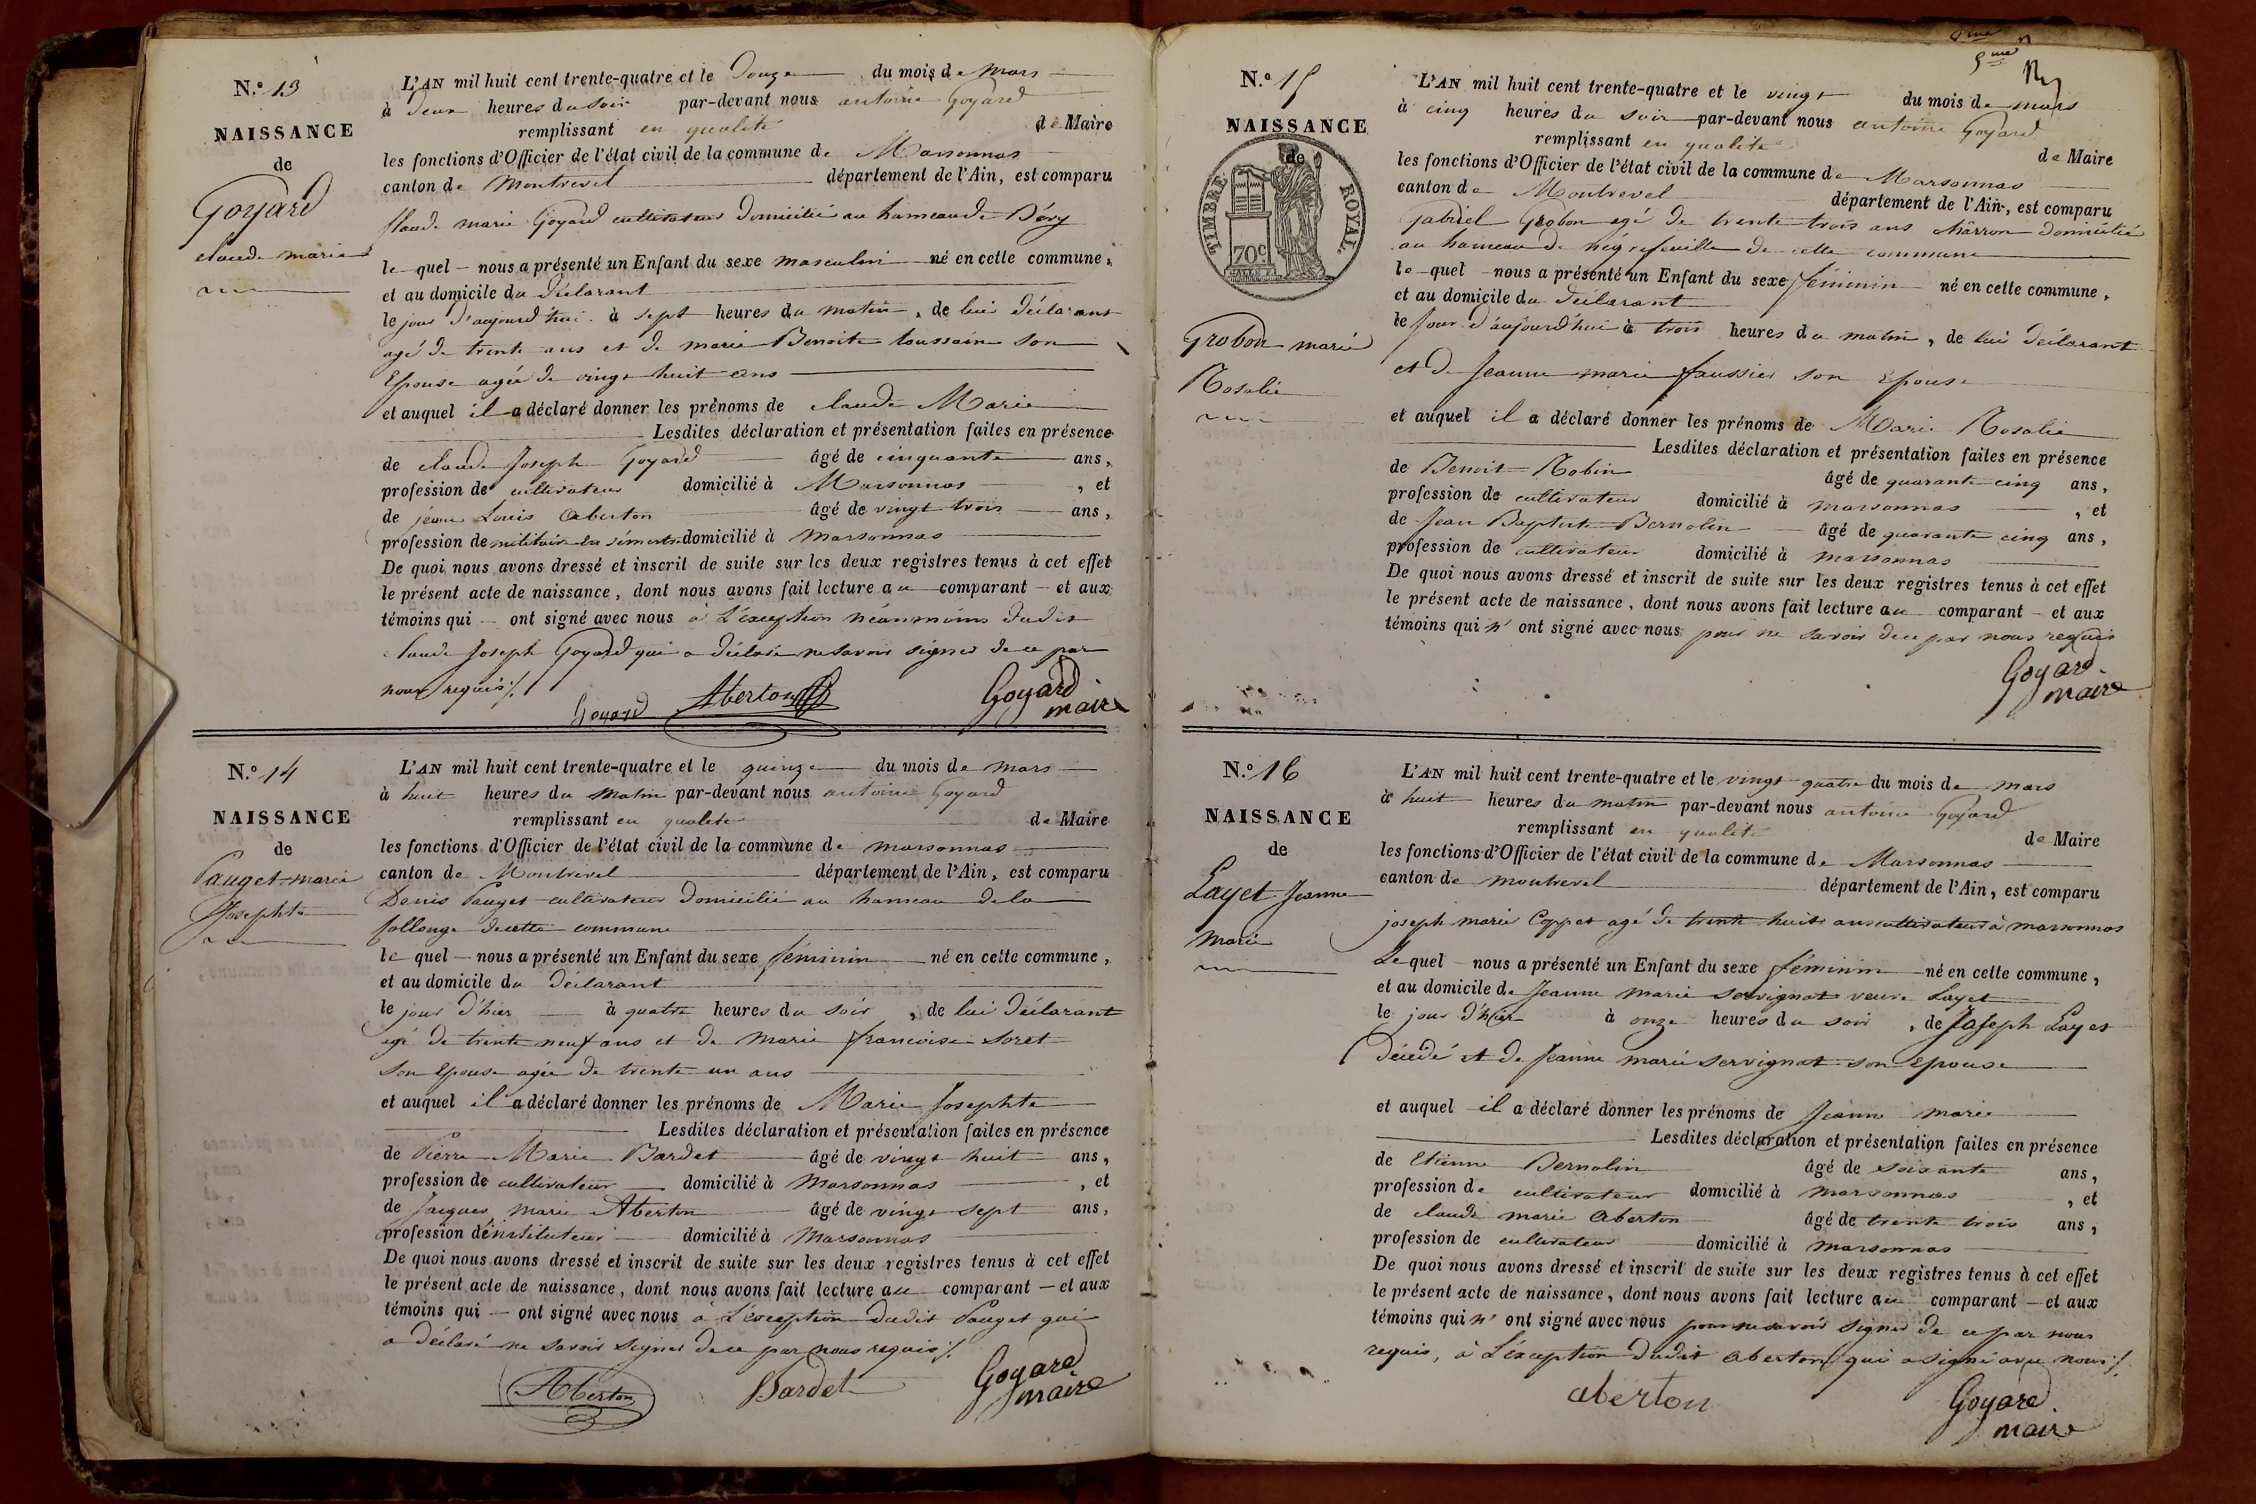 N.º 13
NAISSANCE
de
Goyard
claude marie
L'AN mil huit cent trente-quatre et le Douze du mois de Mars
à deux heures du soir par-devant nous antoine Goyard
remplissant en qualité de Maire
les fonctions d'Officier de l'état civil de la commune de Marsonnas
canton de Montrevel département de l'Ain, est comparu
Claude marie Goyard cultivateur domicilié au hameau de
le quel nous a présenté un Enfant du sexe masculin né en cette commune,
et au domicile du déclarant
le jour d'aujourd'hui à sept heures du matin, de lui déclarant
agé de trente ans et de marie Benoite toussain son
Epouse agée de vingt huit ans
et auquel il a déclaré donner les prénoms de claude Marie
Lesdites déclaration et présentation faites en présence
de claude Joseph Goyard âgé de cinquante ans,
profession de cultivateur domicilié à Marsonnas, et
de jean Louis Aberton âgé de vingt trois ans,
profession de militaire domicilié à Marsonnas
De quoi nous avons dressé et inscrit de suite sur les deux registres tenus à cet effet
le présent acte de naissance, dont nous avons fait lecture au comparant et aux
témoins qui ont signé avec nous à L'éxception néanmoins dudit
claude Joseph Goyard qui a déclaré ne savoir signer de ce par
nous requis /.
Goyard Aberton Goyard
maire
N.º 14
NAISSANCE
de
Pauget marie
Josephte
L'AN mil huit cent trente-quatre et le quinze du mois de Mars
à huit heures du Matin par-devant nous antoine Goyard
remplissant en qualité de Maire
les fonctions d'Officier de l'état civil de la commune de marsonnas
canton de Montrevel département de l'Ain, est comparu
Denis Pauget cultivateur domicilié au hameau de la
follonge de cette commune
le quel nous a présenté un Enfant du sexe féminin né en cette commune,
et au domicile du déclarant
le jour d'hier à quatre heures du soir, de lui déclarant
agé de trente neuf ans et de Marie francoise Soret
son Epouse agée de trente un ans
et auquel il a déclaré donner les prénoms de Marie Josephte
Lesdites déclaration et présentation faites en présence
de Pierre Marie Bardet âgé de vingt huit ans,
profession de cultivateur domicilié à Marsonnas, et
de Jacques marie Aberton âgé de vingt sept ans,
profession d'instituteur domicilié à Marsonnas
De quoi nous avons dressé et inscrit de suite sur les deux registres tenus à cet effet
le présent acte de naissance, dont nous avons fait lecture au comparant et aux
témoins qui ont signé avec nous à L'éxception dudit Pauget qui
a déclaré ne savoir signer de ce par nous requis /.
Aberton Bardet Goyard
maire
5me
N.º 15
NAISSANCE
de
TIMBRE ROYAL
70c
Grobon marie
Rosalie
L'AN mil huit cent trente-quatre et le vingt du mois de mars
à cinq heures du soir par-devant nous antoine Goyard
remplissant en qualité de Maire
les fonctions d'Officier de l'état civil de la commune de Marsonnas
canton de Montrevel département de l'Ain, est comparu
Gabriel Grobon agé de trente trois ans chârron domicilié
au hameau de négrefeuille de cette commune
le quel nous a présenté un Enfant du sexe féminin né en cette commune,
et au domicile du déclarant
le Jour d'aujourd'hui à trois heures du matin, de lui déclarant
et de Jeanne marie faussier son Epouse
et auquel il a déclaré donner les prénoms de Marie Rosalie
Lesdites déclaration et présentation faites en présence
de Benoit Robin âgé de quarante cinq ans,
profession de cultivateur domicilié à marsonnas, et
de Jean Baptiste Bernolin âgé de quarante cinq ans,
profession de cultivateur domicilié à marsonnas
De quoi nous avons dressé et inscrit de suite sur les deux registres tenus à cet effet
le présent acte de naissance, dont nous avons fait lecture au comparant et aux
témoins qui n' ont signé avec nous pour ne savoir de ce par nous requis
Goyard
maire
N.º 16
NAISSANCE
de
Layet Jeanne
Marie
L'AN mil huit cent trente-quatre et le vingt quatre du mois de mars
à huit heures du matin par-devant nous antoine Goyard
remplissant en qualité de Maire
les fonctions d'Officier de l'état civil de la commune de Marsonnas
canton de montrevel département de l'Ain, est comparu
joseph marie Coppet agé de trente huit ans cultivateur à marsonnas
Le quel nous a présenté un Enfant du sexe féminin né en cette commune,
et au domicile de Jeanne marie servignat veuve Layet
le jour d'hier à onze heures du soir, de Joseph Layet
décédé et de Jeanne marie servignat son epouse
et auquel il a déclaré donner les prénoms de Jeanne marie
Lesdites déclaration et présentation faites en présence
de Etienne Bernolin âgé de soixante ans,
profession de cultivateur domicilié à marsonnas, et
de claude marie Aberton âgé de trente trois ans,
profession de cultivateur domicilié à marsonnas
De quoi nous avons dressé et inscrit de suite sur les deux registres tenus à cet effet
le présent acte de naissance, dont nous avons fait lecture au comparant et aux
témoins qui n' ont signé avec nous pour ne savoir signer de ce par nous
requis, à L'éxception dudit aberton qui a signé avec nous /.
aberton Goyard
maire